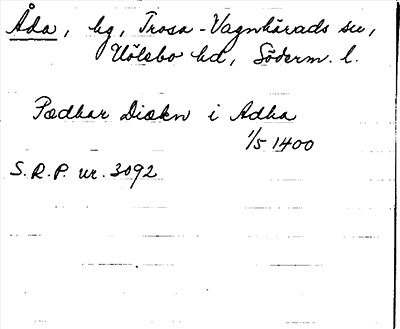 Åda, hg, Trosa-Vagnhärads sn,
Hölebo hd, Söderm. l.
Pædhar Diækn i Adha
1/5 1400
S.R.P. nr. 3092